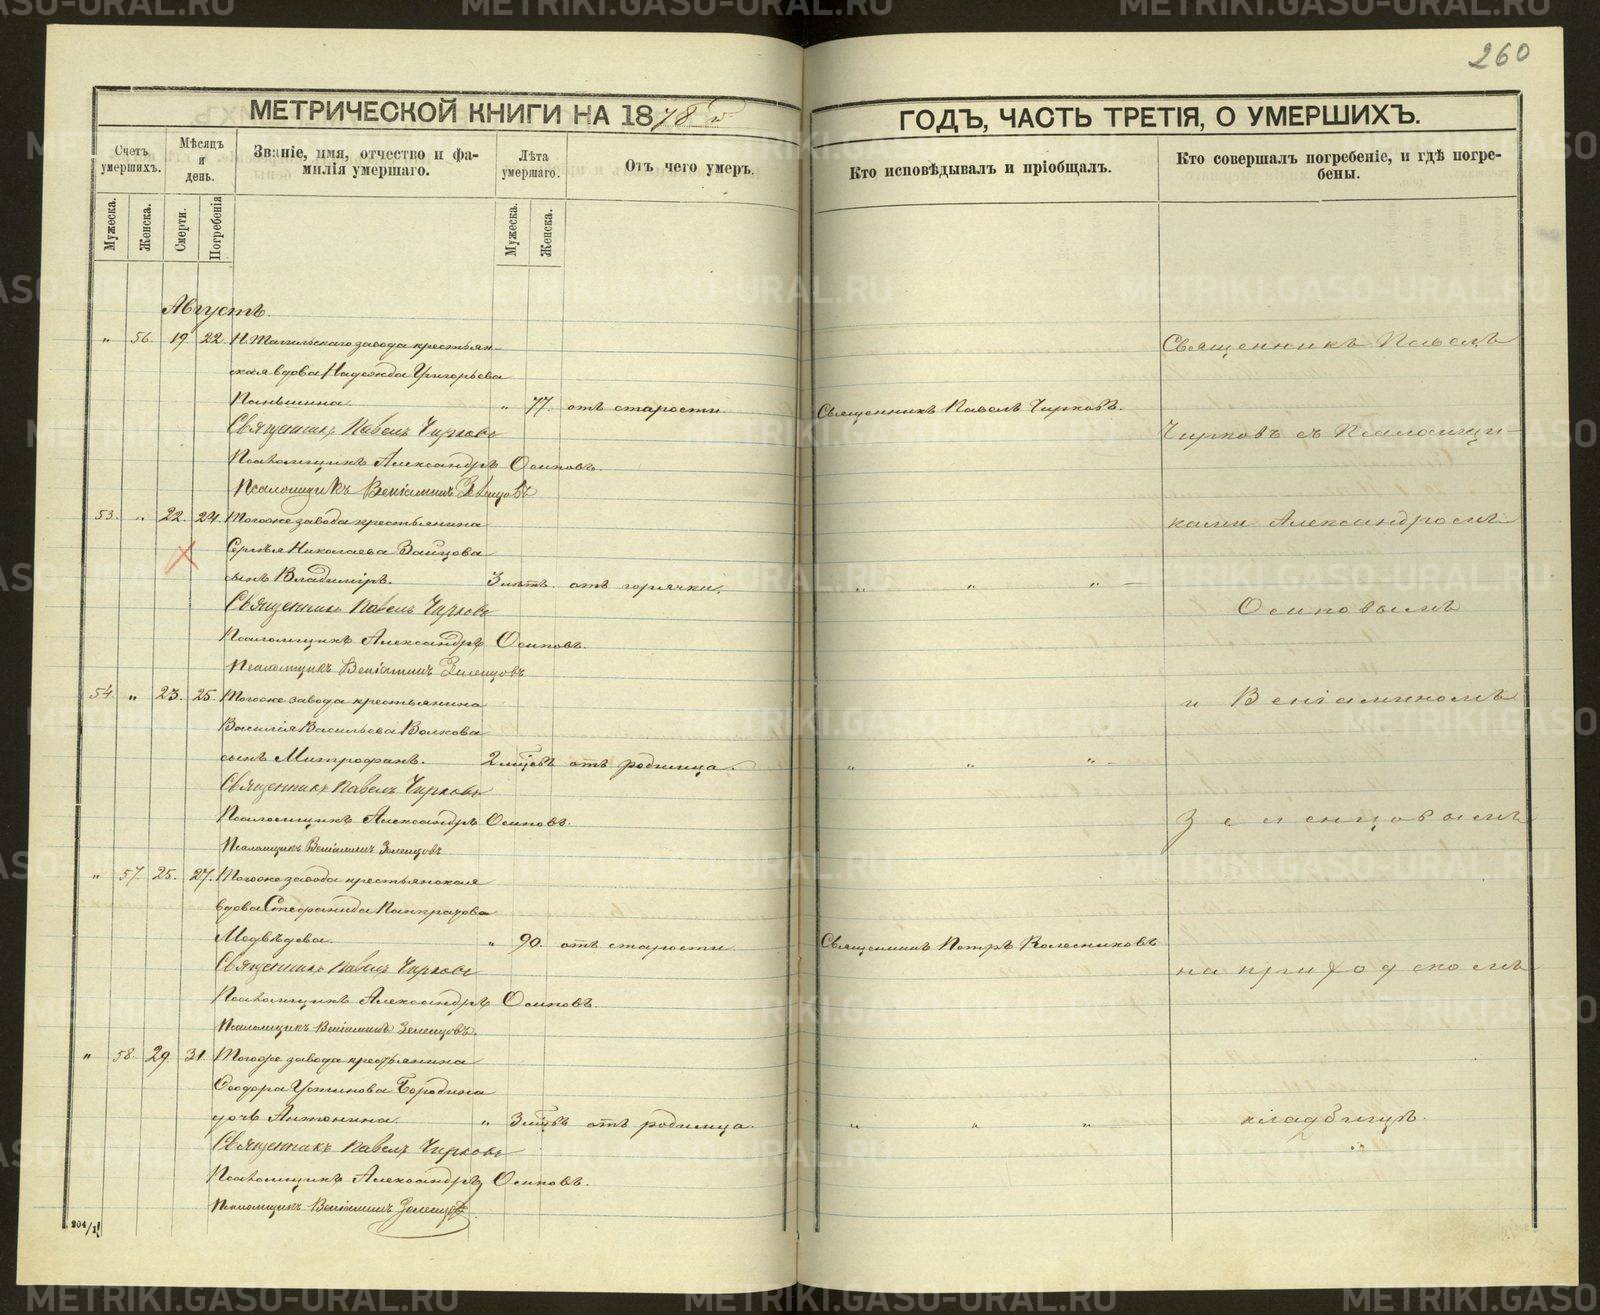 260
МЕТРИЧЕСКОЙ КНИГИ НА 1878 й
ГОДЪ, ЧАСТЬ ТРЕТІЯ, О УМЕРШИХЪ.
Счетъ умершихъ.
Мѣсяцъ и день.
Званіе, имя, отчество и фа-
милія умершаго.
Лѣта умершаго.
Отъ чего умеръ.
Кто исповѣдывалъ и пріобщалъ.
Кто совершалъ погребеніе, и гдѣ погре-
бены.
Мужеска.
Женска.
Смерти.
Погребенія
Мужеска.
Женска.
Августъ.
„ 56. 19 22. Н. Тагильскаго завода крестьян-
ская вдова Надежда Григорьева
Паньшина. „ 77. отъ старости Священникъ Павелъ Чирковъ.
Священникъ Павелъ Чирковъ
Псаломщикъ Александръ Осиповъ.
Псаломщикъ Веніаминъ Земенцовъ
53. „ 22. 24. Тогоже завода крестьянина
Сергѣя Николаева Зайцова
сынъ Владиміръ. 3 лѣтъ. отъ горячки. „ „ „ —
Священникъ Павелъ Чирковъ
Псаломщикъ Александръ Осиповъ.
Псаломщикъ Веніаминъ Земенцовъ
54 „ 23. 25. Тогоже завода крестьянина
Василія Васильева Волкова
сынъ Митрофанъ. 2 мѣсъ отъ родимца. „ „ „
Священникъ Павелъ Чирковъ
Псаломщикъ Александръ Осиповъ.
Псаломщикъ Веніаминъ Земенцовъ
„ 57. 25. 27. Тогоже завода крестьянская
вдова Стефанида Панкратова
Медвѣдева. „ 90. отъ старости Священникъ Петръ Колесниковъ
Священникъ Павелъ Чирковъ
Псаломщикъ Александръ Осиповъ.
Псаломщикъ Веніаминъ Земенцовъ.
„ 58. 29. 31. Тогоже завода крестьянина
Ѳеодора Устинова Бородина
дочь Антонина. „ 3 мѣсъ отъ родимца. „ „ „
Священникъ Павелъ Чирковъ
Псаломщикъ Александръ Осиповъ.
Псаломщикъ Веніаминъ Земенцовъ
Священникъ Павелъ
Чирковъ съ Псаломщи-
ками Александромъ
Осиповымъ
и Веніаминомъ
Земенцовымъ
на приходскомъ
кладбищѣ.
204/1
METRIKI.GASO-URAL.RU